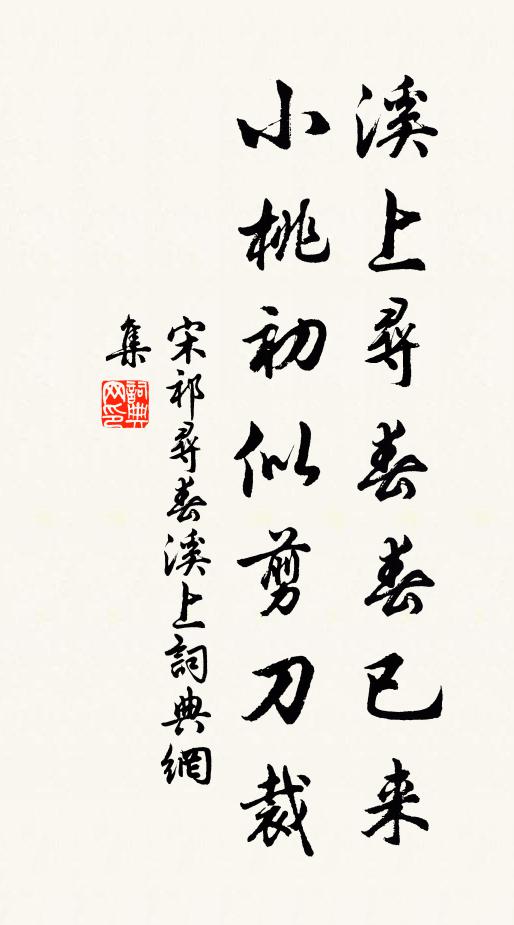 溪上尋春春已来
小桃初似剪刀裁
宋祁尋春溪上詞典網
集
詞典網印